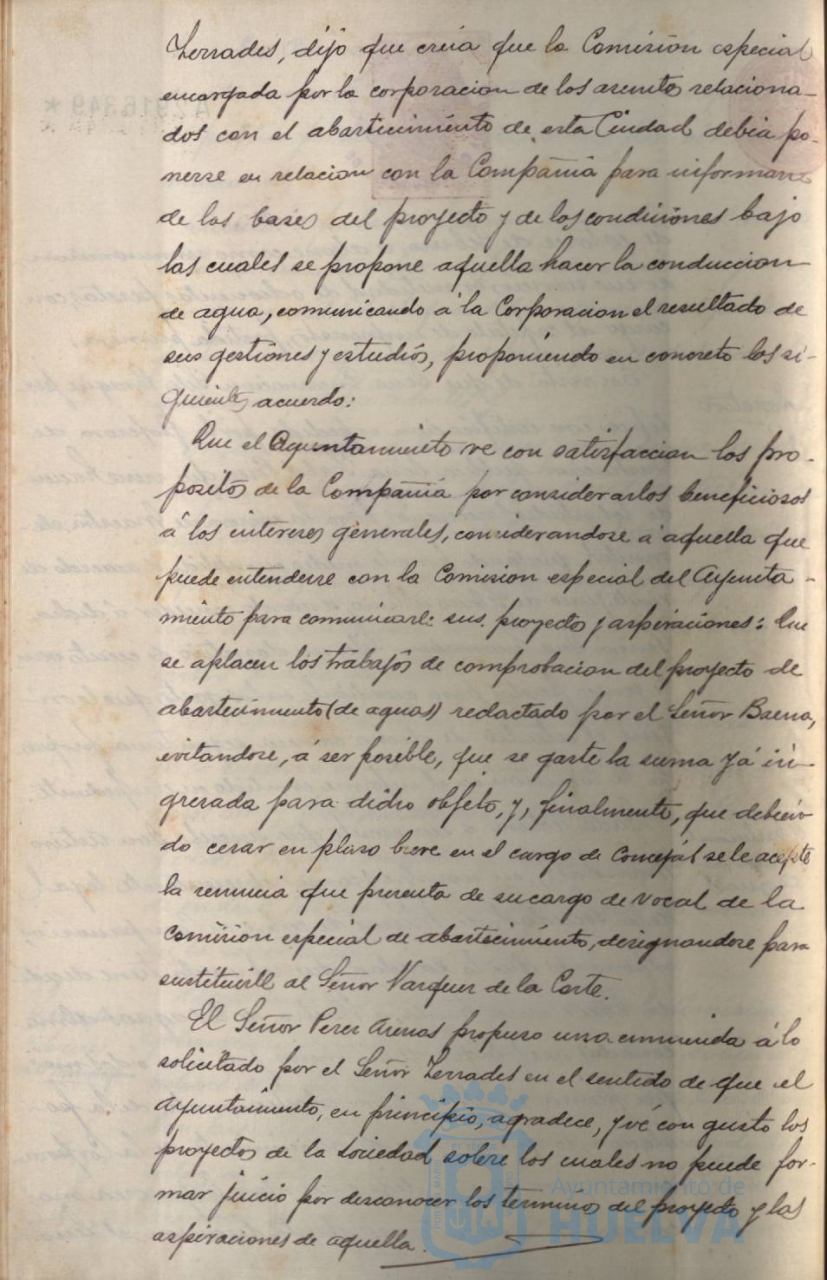 Terrades, dijo que creia que la Comisión especial
encargada por la corporacion de los asuntos relaciona-
dos con el abastecimiento de esta Ciudad debia po-
nerse en relacion con la Compañia para informarse
de las bases del proyecto y de las condiciones bajo
las cuales se propone aquella hacer la conduccion
de agua, comunicando á la Corporacion el resultado de
sus gestiones y estudios, proponiendo en concreto los si-
guientes acuerdo:
Que el Ayuntamiento ve con satisfaccion los pro-
positos de la Compañia por considerarlos beneficiosos
á los intereses generales, considerandose á aquella que
puede entenderse con la Comision especial del Ayunta-
miento para comunicarle sus proyectos y aspiraciones: Que
se aplacen los trabajos de comprobacion del proyecto de
abastecimiento (de aguas) redactado por el Señor Baena,
evitandose, á ser posible, que se gaste la suma yá in-
gresada para dicho objeto, y, finalmente, que debien-
do cesar en plazo breve en el cargo de Concejal se le acepte
la renuncia que presenta de su cargo de vocal de la
Comision especial de abastecimiento, designandose para
sustituirle al Señor Vazquez de la Corte.
El Señor Perez Arenas propuso una enmienda á lo
solicitado por el Señor Terrades en el sentido de que el
Ayuntamiento, en principio, agradece, y vé con gusto los
proyectos de la Sociedad sobre los cuales no puede for-
mar juicio por desconocer los terminos del proyecto y las
aspiraciones de aquella.
Ayuntamiento de
HUELVA